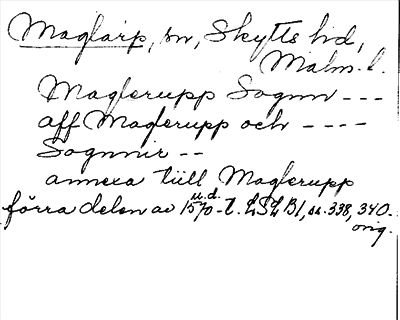 Maglarp, sn, Skytts hd,
Malm. l.
Maglerupp Sognn ---
aff Maglerupp och ----
Sognnir --
annexa till Maglerupp
u.d.
förra delen av 1570-t. LSLB1, ss. 338, 340.
orig.